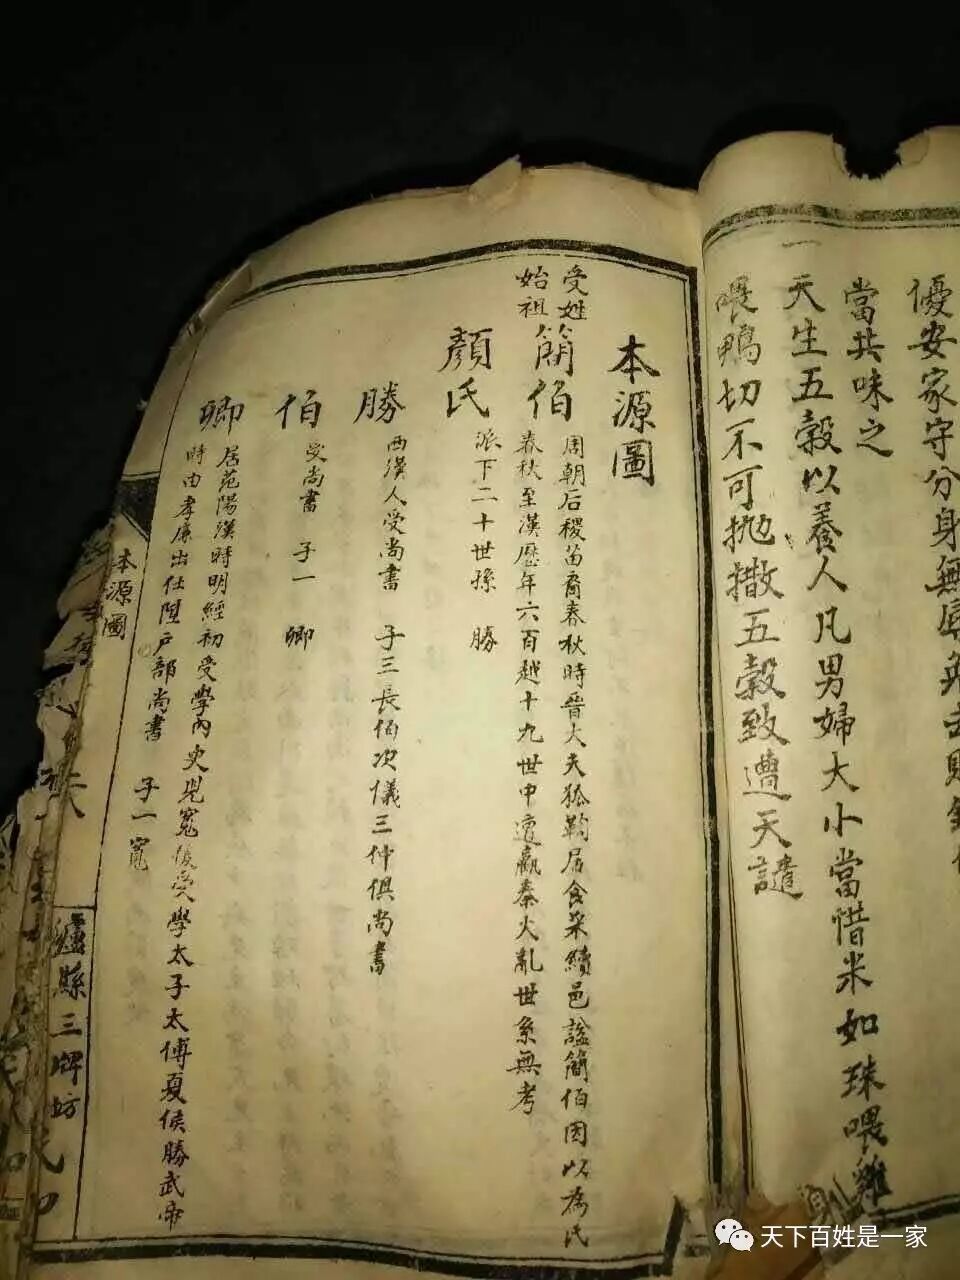 優安家守分身無辱
當共味之
一
天生五穀以養人凡男婦大小當惜米如珠喂雞
喂鴨切不可拋撒五穀致遭天譴
本源圖
受姓
始祖
簡伯
周朝后稷苗裔春秋時晉大夫狐鞫居食采續邑諡簡伯因以為氏
春秋至漢歷年六百越十九世中遭嬴秦火亂世系無考
顏氏
派下二十世孫 勝
勝
西漢人受尚書 子三長伯次儀三仲俱尚書
伯
受尚書 子一 卿
卿
居范陽漢時明經初受學內史児寬後受學太子太傅夏侯勝武帝
時由孝廉出仕陞戶部尚書 子一 寬
本源圖
瀘縣三牌坊
天下百姓是一家